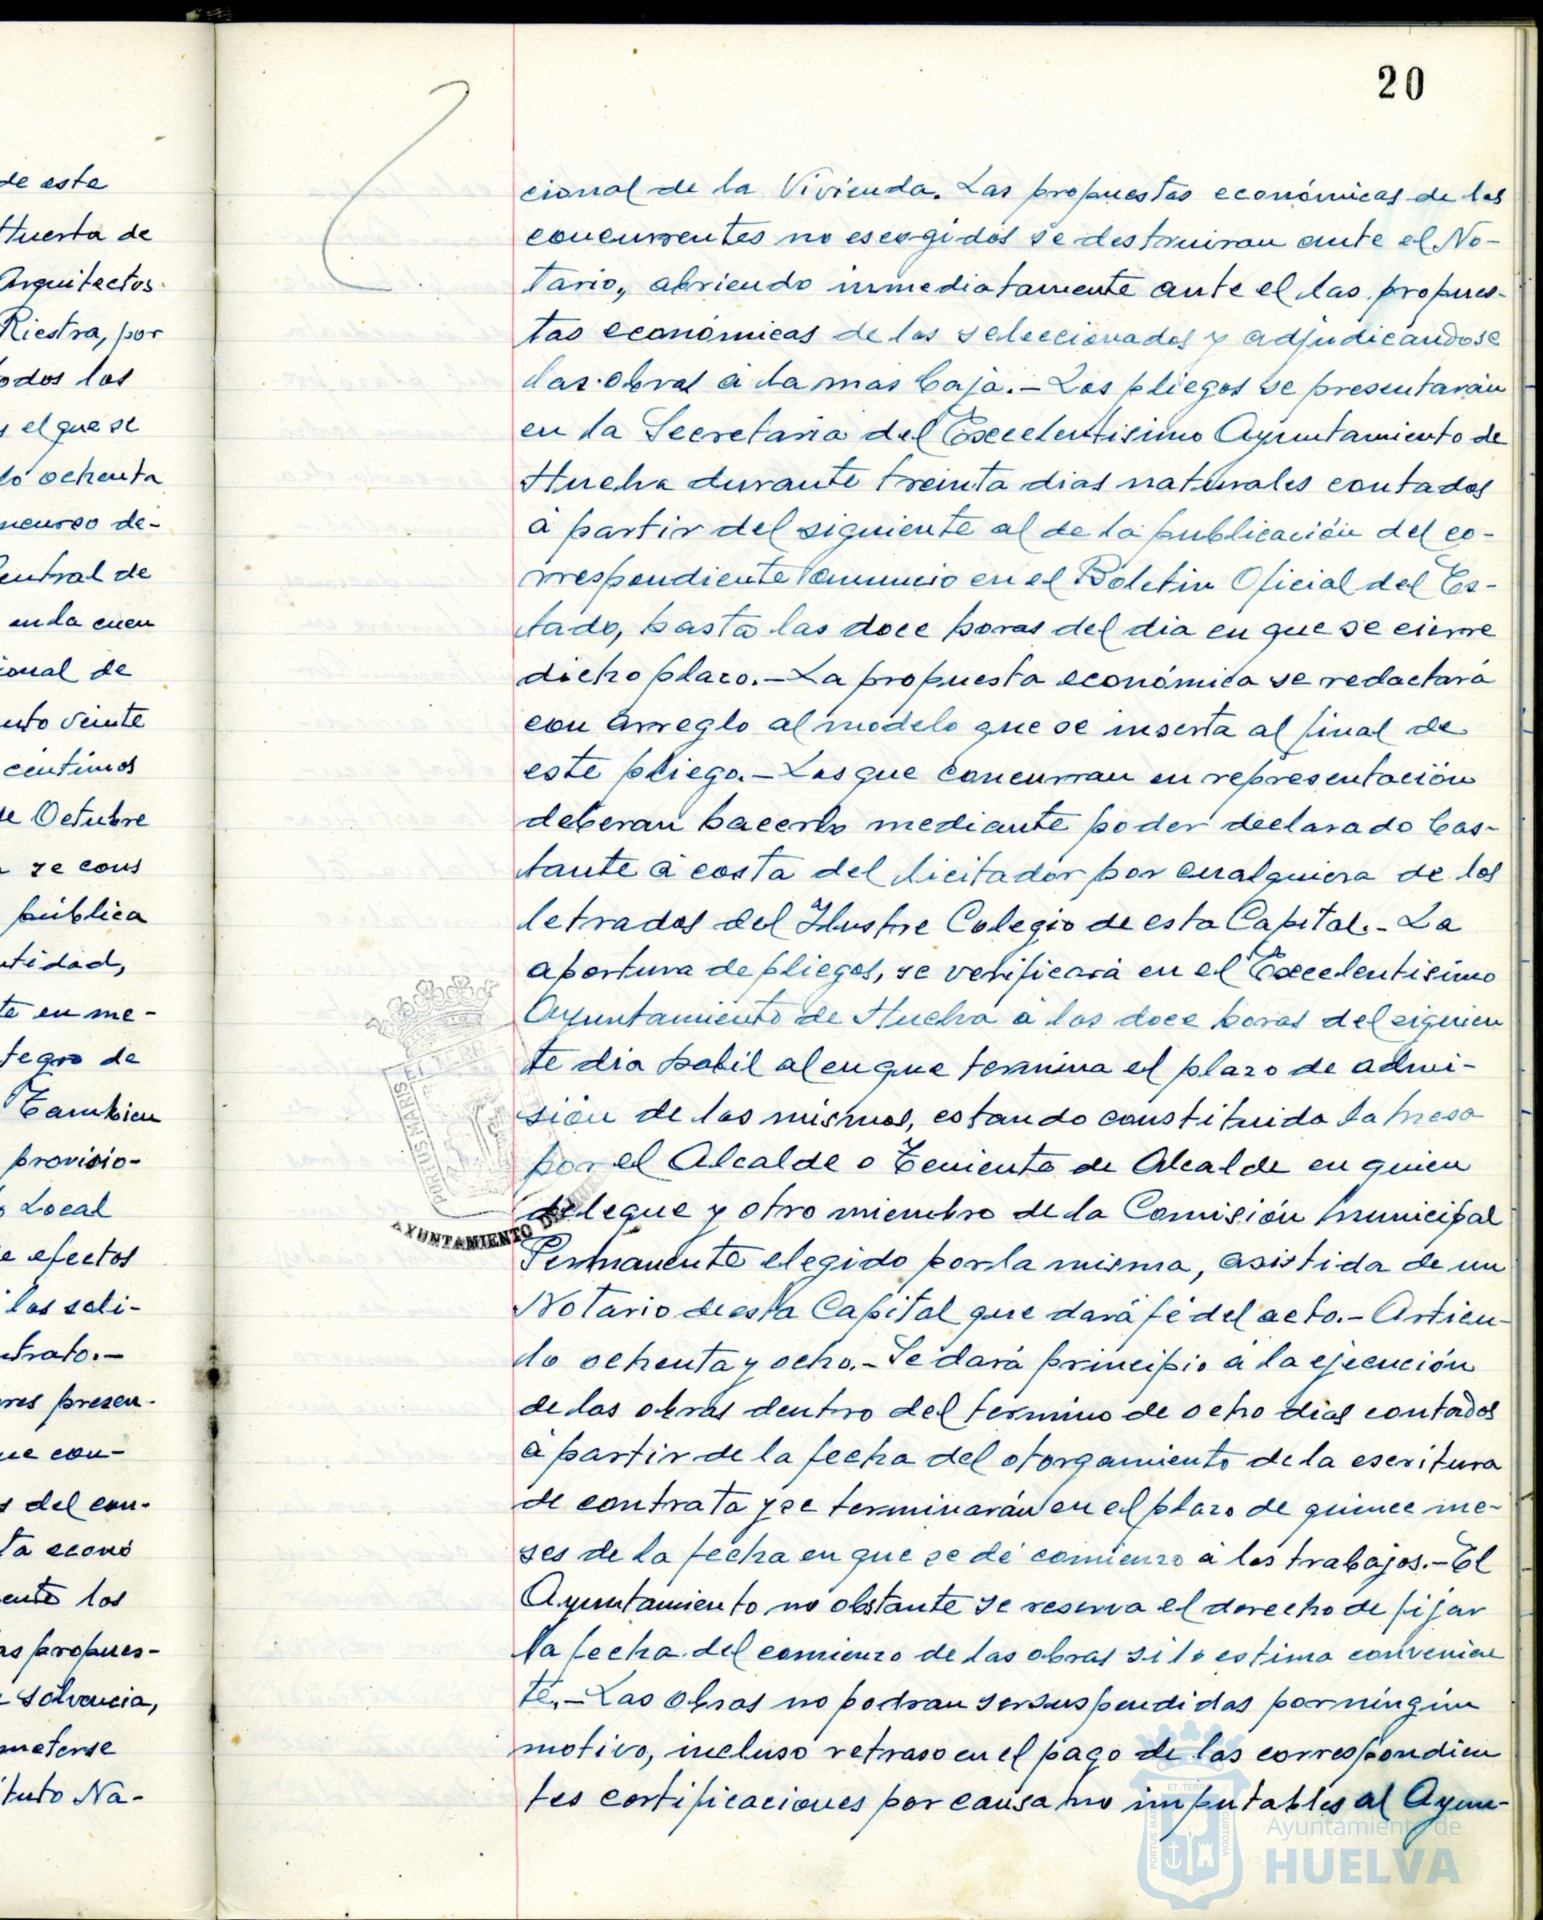 de este
Huerta de
Arquitectos
Riestra, por
odos los
el que se
lo ochenta
ncurso de-
Central de
en la cuen
ional de
nto veinte
centimos
de Octubre
se cons
pública
ntidad,
te en me-
tegro de
Tambien
provisio-
Local
e efectos
los soli-
ntrato.-
res presen-
ue con-
s del con-
ta econó
ente los
as propues-
solvencia,
meterse
tuto Na-
20
cional de la Vivienda. Las propuestas económicas de los
concurrentes no escogidos se destruiran ante el No-
tario, abriendo inmediatamente ante el las propues-
tas económicas de los seleccionados y adjudicandose
las obras á la mas baja.- Los pliegos se presentarán
en la Secretaria del Excelentisimo Ayuntamiento de
Huelva durante treinta dias naturales contados
á partir del siguiente al de la publicación del co-
rrespondiente anuncio en el Boletin Oficial del Es-
tado, hasta las doce horas del dia en que se cierre
dicho plazo.- La propuesta económica se redactará
con arreglo al modelo que se inserta al final de
este pliego.- Los que concurran en representación
deberan hacerlo mediante poder declarado bas-
tante á costa del licitador por cualquiera de los
letrados del Ilustre Colegio de esta Capital.- La
apertura de pliegos, se verificará en el Excelentisimo
Ayuntamiento de Huelva á las doce horas del siguien
te dia habil al en que termina el plazo de admi-
sión de los mismos, estando constituida la mesa
por el Alcalde o Teniente de Alcalde en quien
delegue y otro miembro de la Comisión Municipal
Permanente elegido por la misma, asistida de un
Notario de esta Capital que dará fé del acto.- Articu-
lo ochenta y ocho.- Se dará principio á la ejecución
de las obras dentro del termino de ocho dias contados
á partir de la fecha del otorgamiento de la escritura
de contrata y se terminarán en el plazo de quince me-
ses de la fecha en que se dé comienzo á los trabajos.- El
Ayuntamiento no obstante se reserva el derecho de fijar
la fecha del comienzo de las obras si lo estima convenien
te.- Las obras no podran ser suspendidas por ningún
motivo, incluso retraso en el pago de las correspondien
tes certificaciones por causa no imputables al Ayun-
PORTUS MARIS ET TERRAE
AYUNTAMIENTO DE HUELVA
PORTUS MARIS ET TERRAE CUSTODIA
Ayuntamiento de
HUELVA